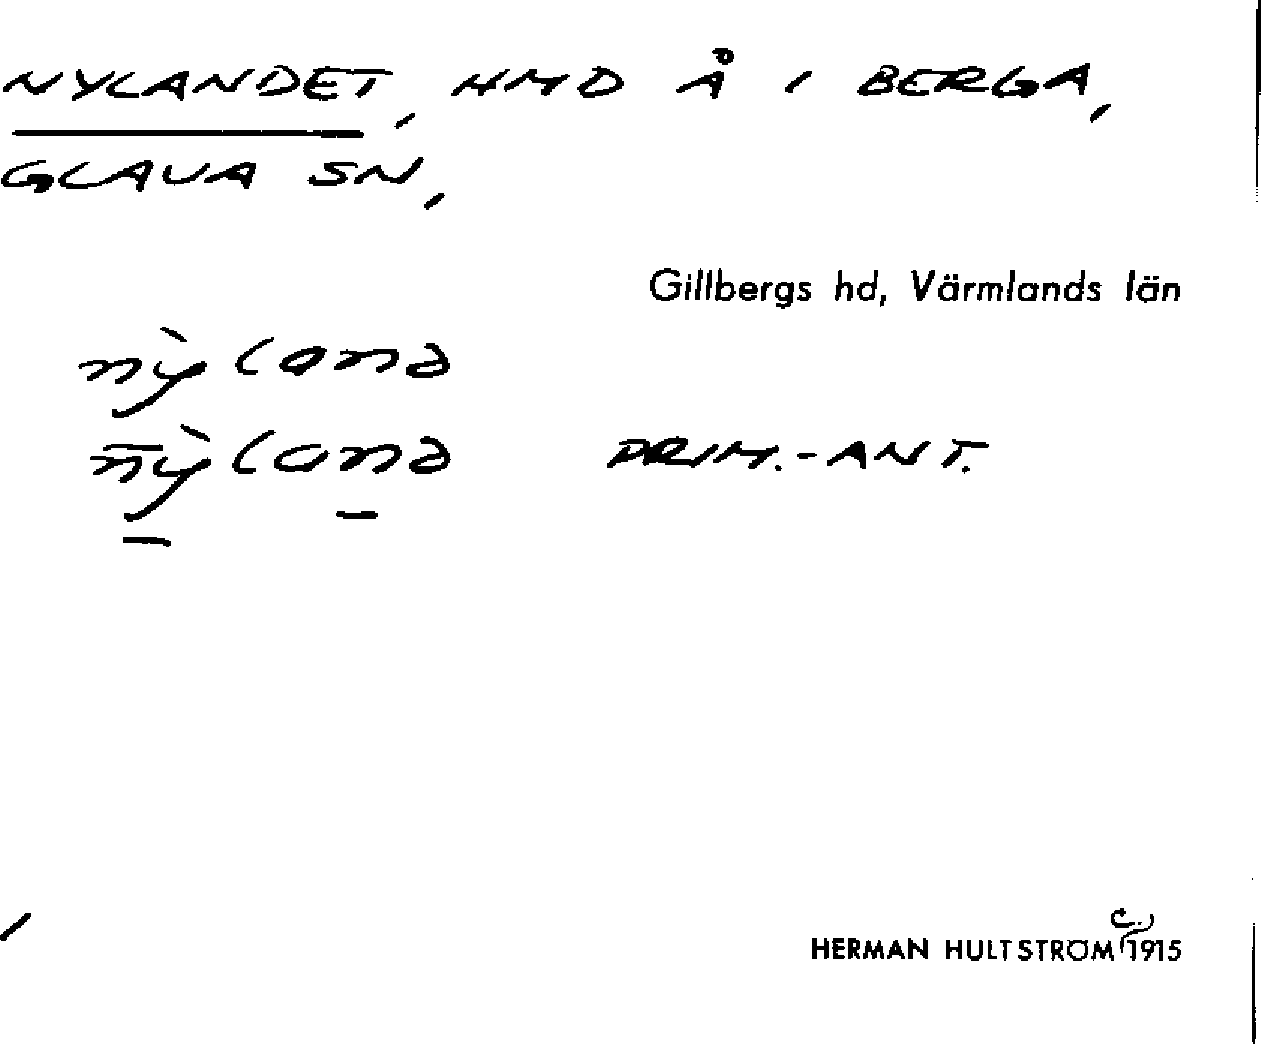 NYLANDET, HMD Å I BERGA,
GLAVA SN,
Gillbergs hd, Värmlands län
nỳland
nỳland PRIM.-ANT.
HERMAN HULTSTRÖM C. 1915